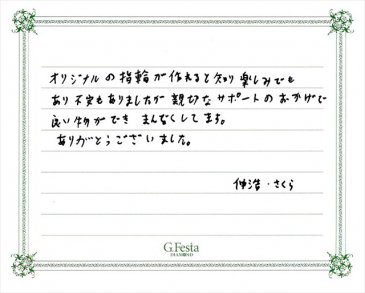 オリジナルの指輪が作れると知り楽しみでも
あり不安もありましたが親切なサポートのおかげで
良い物ができ まんぞくしてます。
ありがとうございました。
伸浩・さくら
G.Festa
DIAMOND